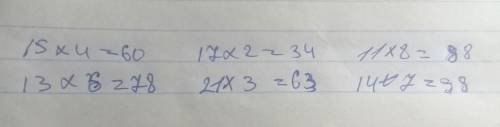 15 x 4 = 60 17 x 2 = 34 11 x 8 = 88
13 x 6 = 78 21 x 3 = 63 14 x 7 = 98